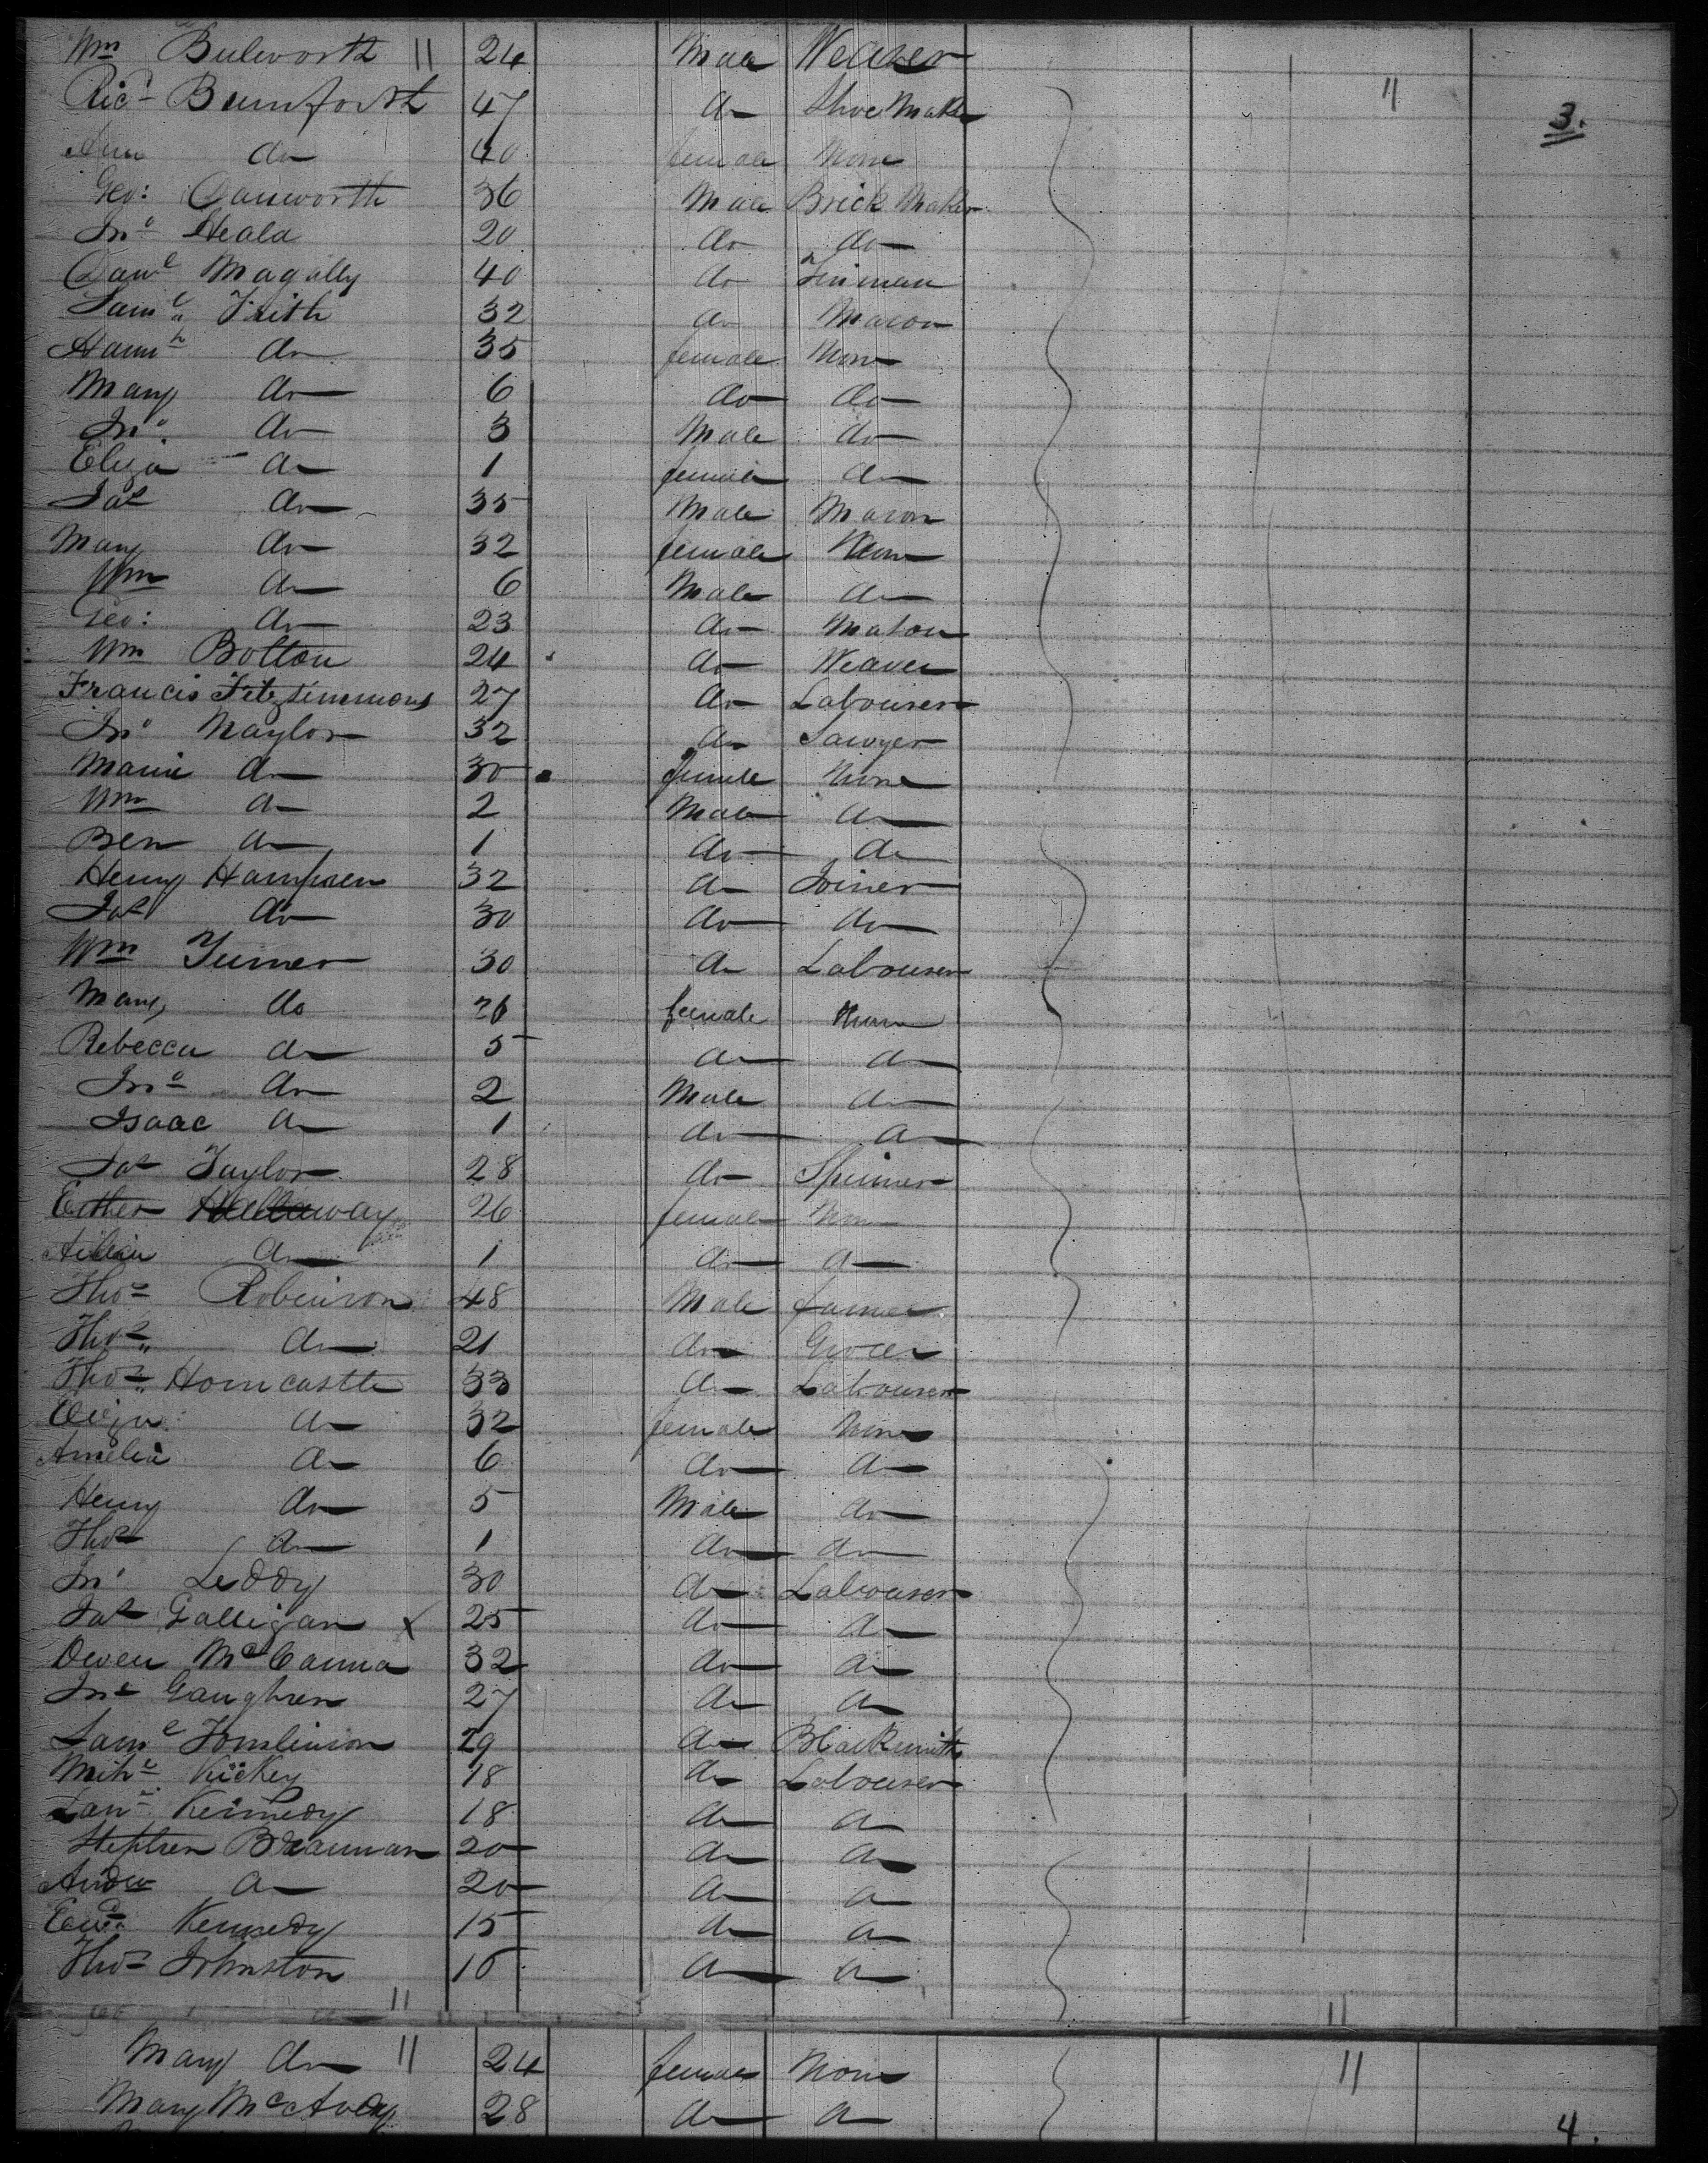 Wm Bulworth 11 24 Male Weaver
Ricd Bumforth 47 do Shoe Maker 11 3.
Ann do 40 female None
Geo: Danworth 36 Male Brick Maker
Jno Heald 20 do do
Danl Magally 40 do Tinman
Saml Frith 32 do Mason
Hannh do 35 female None
Mary do 6 do do
Jno. do 3 Male do
Eliza do 1 female do
Jas do 35 Male Mason
Mary do 32 female None
Wm do 6 Male do
Geo: do 23 do Mason
Wm Bolton 24 do Weaver
Francis Fitzsimmons 27 do Labourer
Jno Naylor 32 do Sawyer
do 30 female None
Wm do 2 Male do
Ben do 1 do do
Henry Hampson 32 do Joiner
Jas do 30 do do
Wm Turner 30 do Labourer
Mary do 26 female None
Rebecca do 5 do do
Jno do 2 Male do
Isaac do 1 do do
Jas Taylor 28 do Spinner
Esther Hellaway 26 female None
do 1 do do
Thos Robinson 48 Male farmer
Thos do 21 do Grocer
Thos Horncastle 33 do Labourer
Eliza do 32 female None
Amelia do 6 do do
Henry do 5 Male do
Thos do 1 do do
Jno Leddy 30 do Labourer
Jas Galligan x 25 do do
Owen McCanna 32 do do
Jno Gaughren 27 do do
Saml Tomlinson 29 do Blacksmith
Hickey 18 do Labourer
Kennedy 18 do do
Stephen Brannan 20 do do
Andw do 20 do do
Edwd Kennedy 15 do do
Thos Johnston 16 do do
11 11
Mary do 11 24 female None 11
Mary McAvoy 28 do do 4.